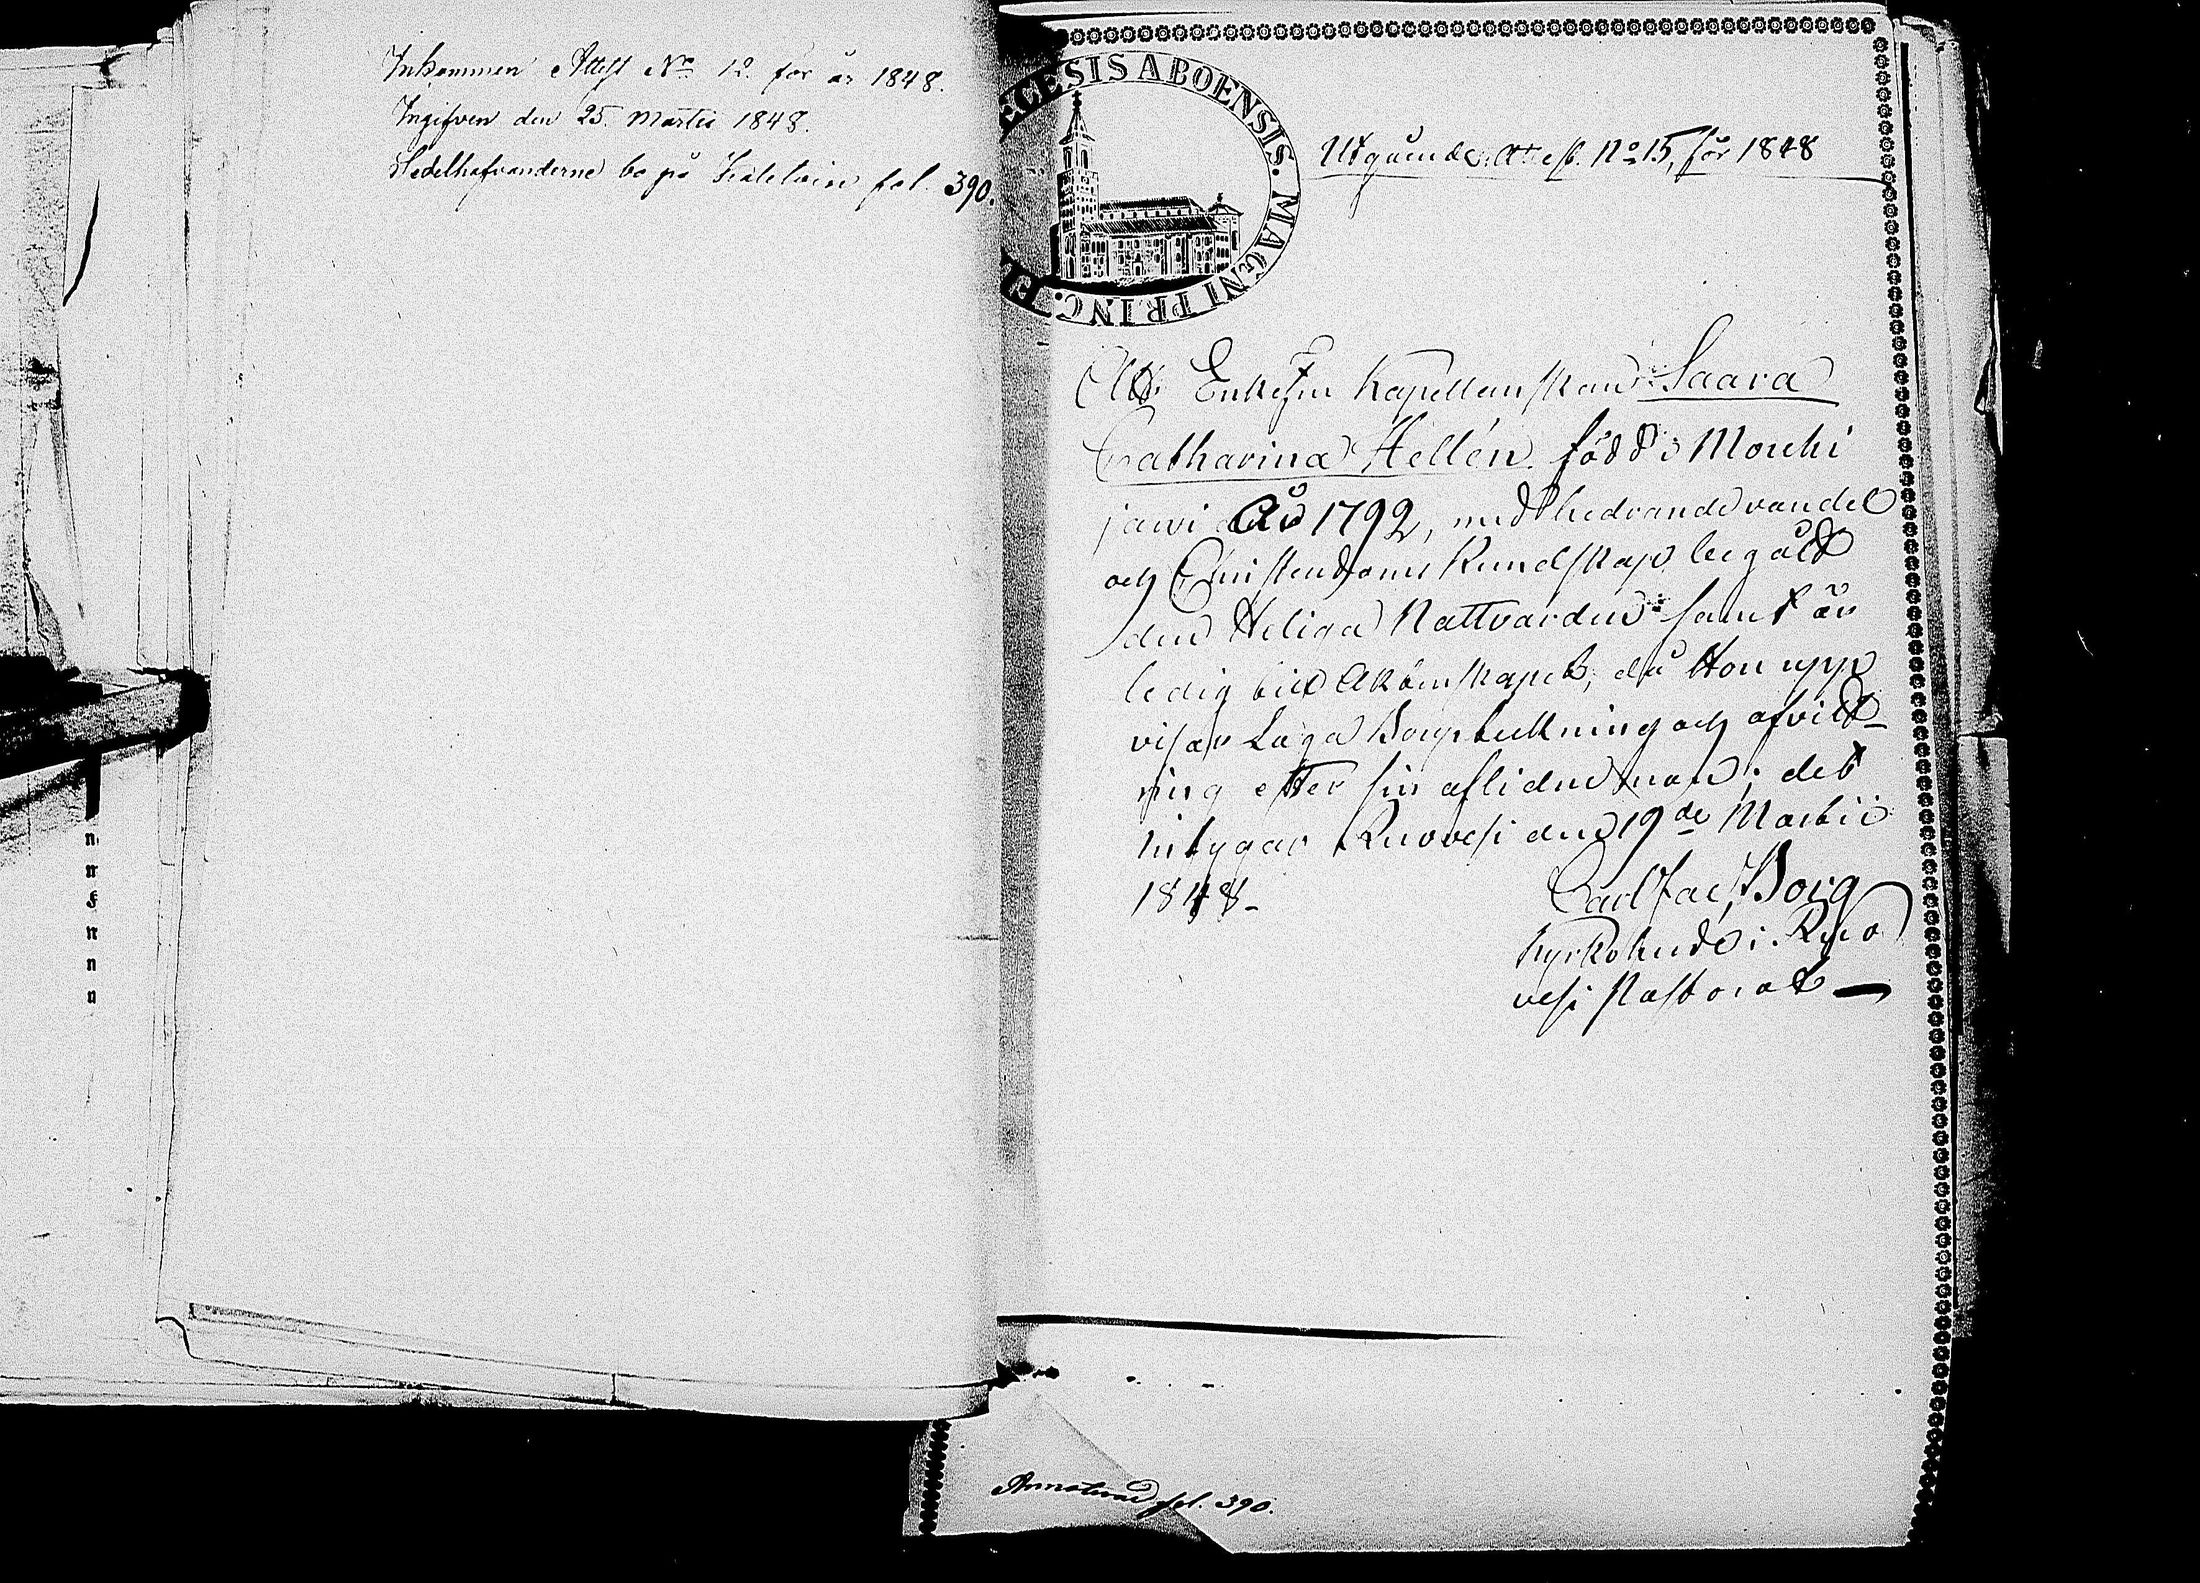 Inkommen Attest No 12. för år 1848.
Ingifven den 25. Martii 1848.
Sedelhafvanderne bo på fol. 390.
ECESIS ABOENSIS. MAGNI PRINC. FI
Utgående Attest. No 15, för 1848
Att Enkefru Kapellanskan Saara
Catharina Hellén född i Mouhi
järvi År 1792, med hedrande vandel
och Christendoms Kundskap begått
den Heliga Nattvarden samt är
ledig till Äktenskapet, då Hon upp
visar Laga Bouptekning och afvitt-
ring efter sin aflidne man; det
intygar Ruovesi den 19de Martii
1848.
Carl Jac. Borg
Kyrkoherde i Ruo
vesi Pastorat
n
n
n
n
Annoterad fol. 390.